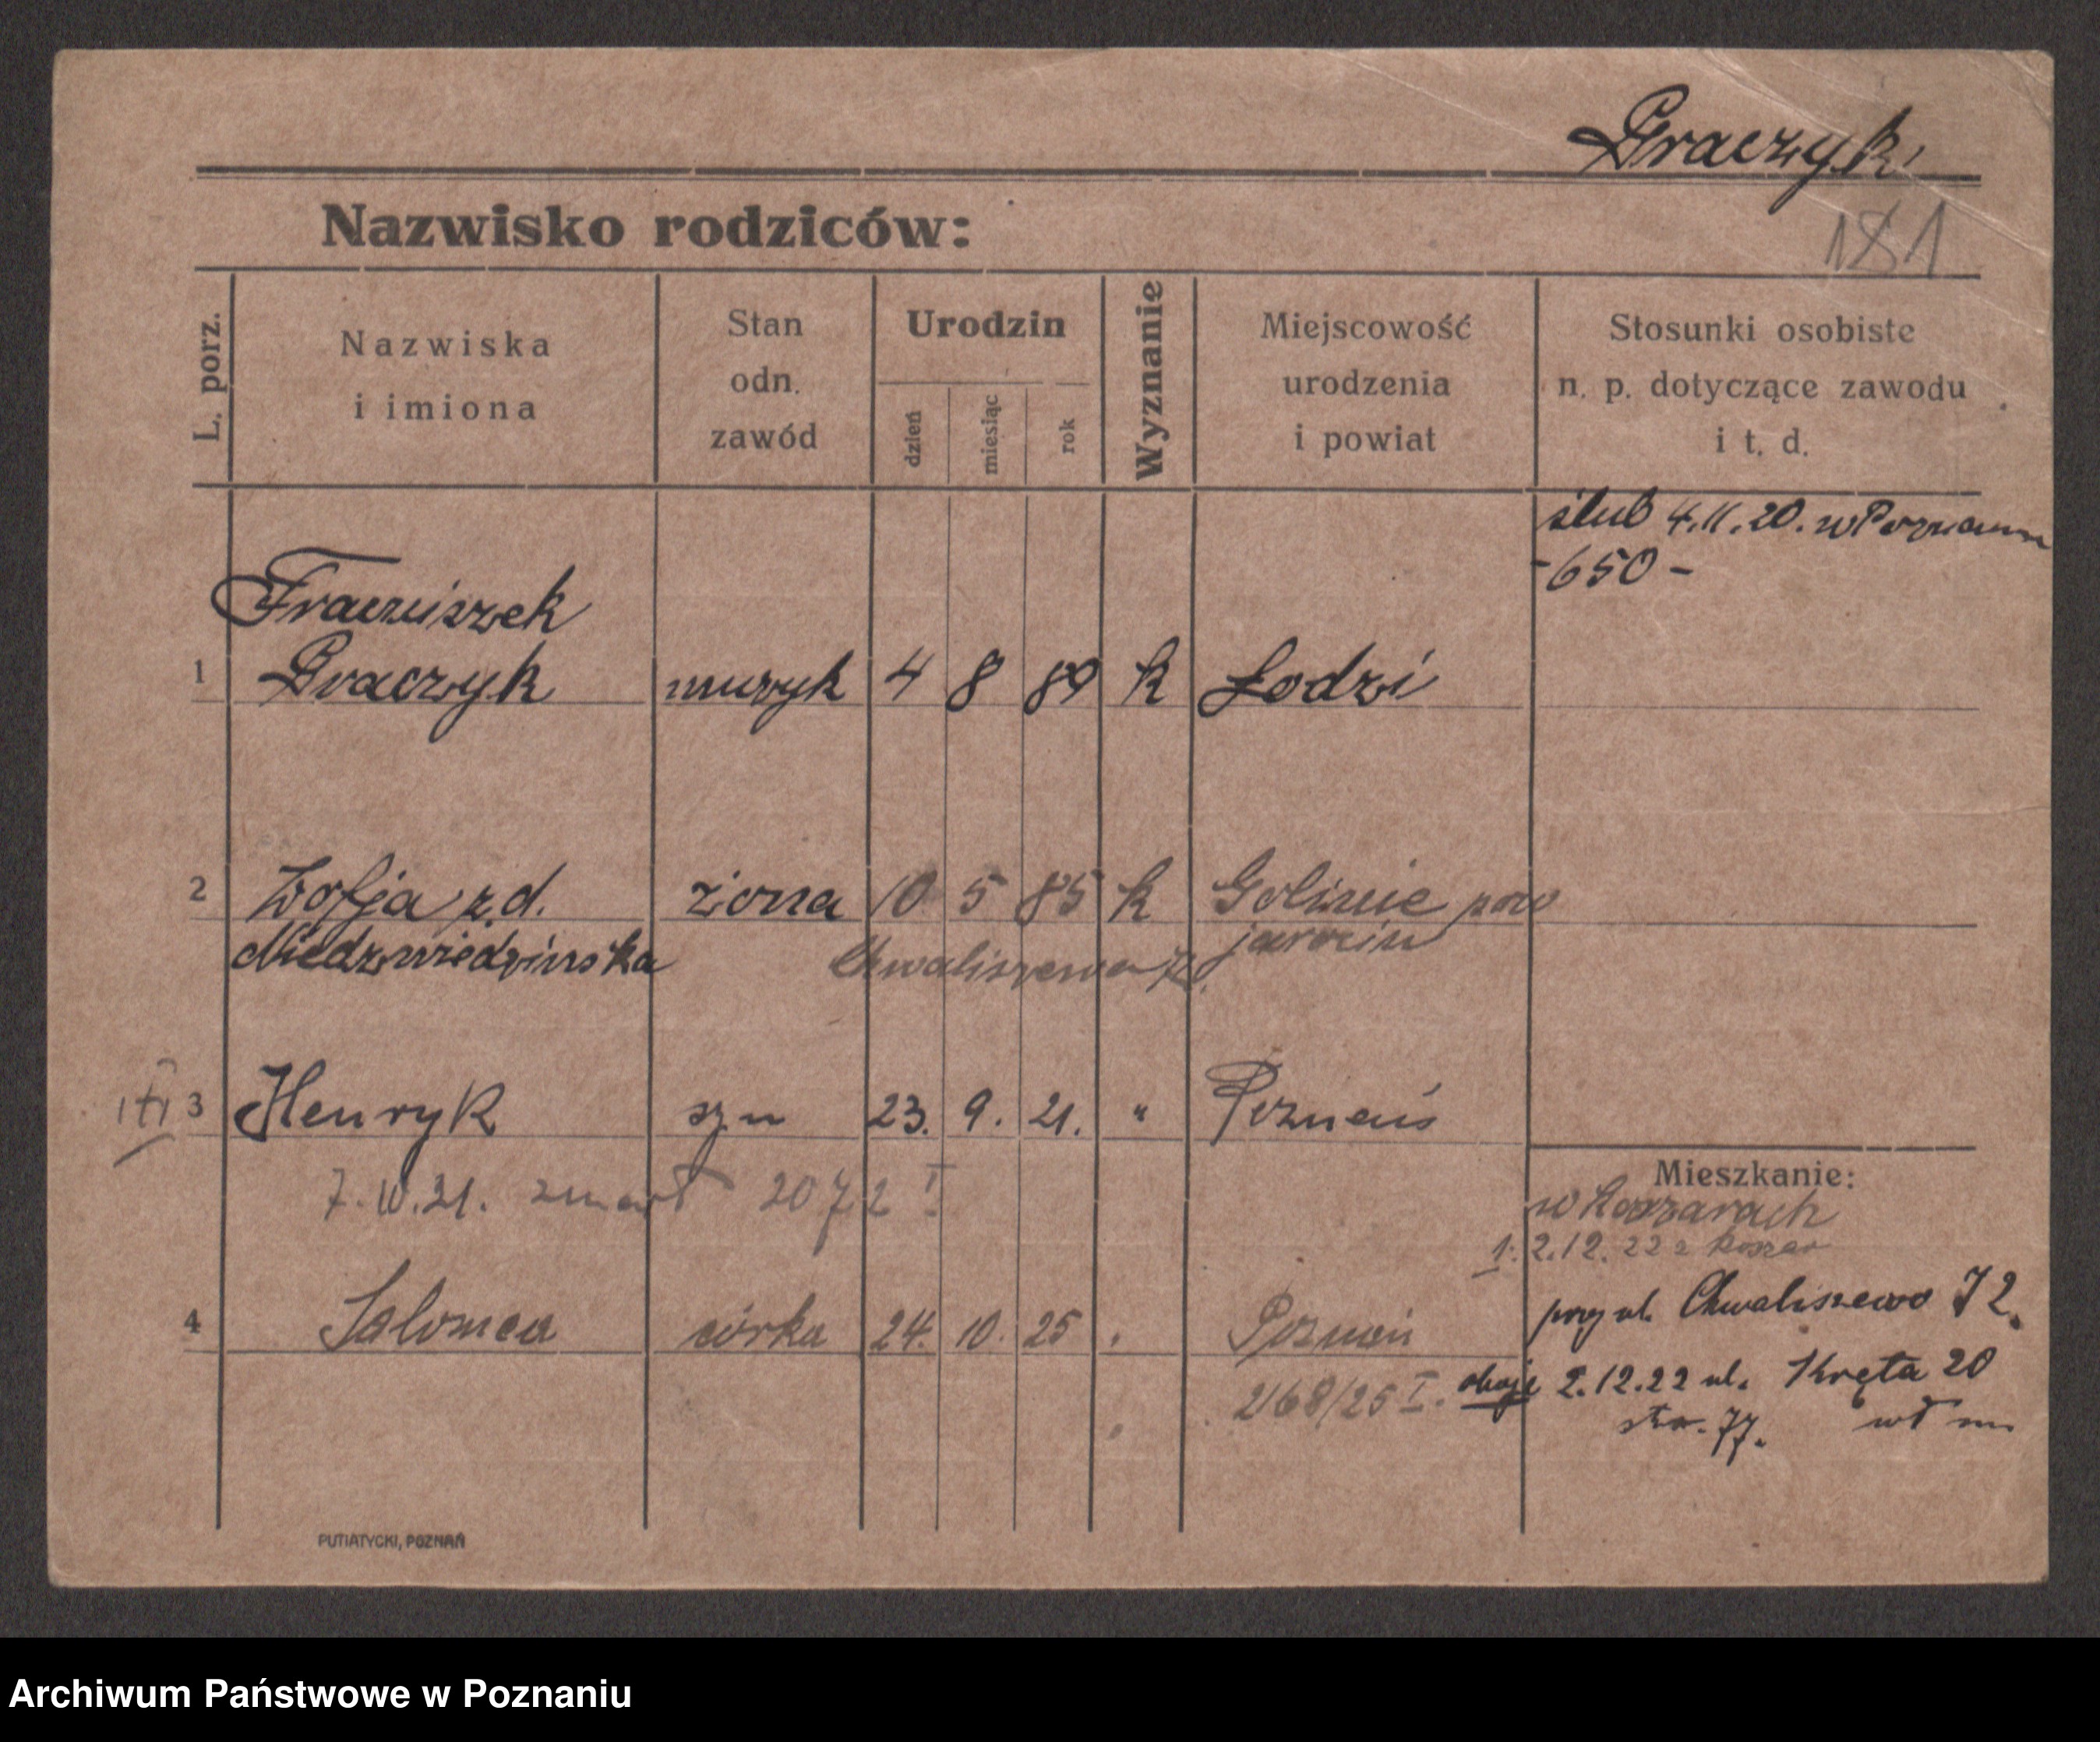 Graczyk
181
Nazwisko rodziców:
L. porz.
Nazwiska
i imiona
Stan
odn.
zawód
Urodzin
dzień
miesiąc
rok
Wyznanie
Miejscowość
urodzenia
i powiat
Stosunki osobiste
n. p. dotyczące zawodu
i t. d.
ślub 4.11.20. w Poznaniu
-650-
Franciszek
1 Graczyk muzyk 4 8 89 k Łodzi
2 Zofja z d. żona 10 5 85 k Golinie pow
Niedzwiedzinska jarocin
Chwaliszewo 72.
3 Henryk syn 23. 9. 21. " Poznań
zmarł 2072 I
Mieszkanie:
w koszarach
1. 2.12.22 z koszar
przy ul. Chwaliszewo 72.
4 Salomea córka 24. 10. 25 Poznań
2168/25 I. oboje 2.12.22 ul. Kręta 20
str. 77.
PUTIATYCKI, POZNAŃ
Archiwum Państwowe w Poznaniu